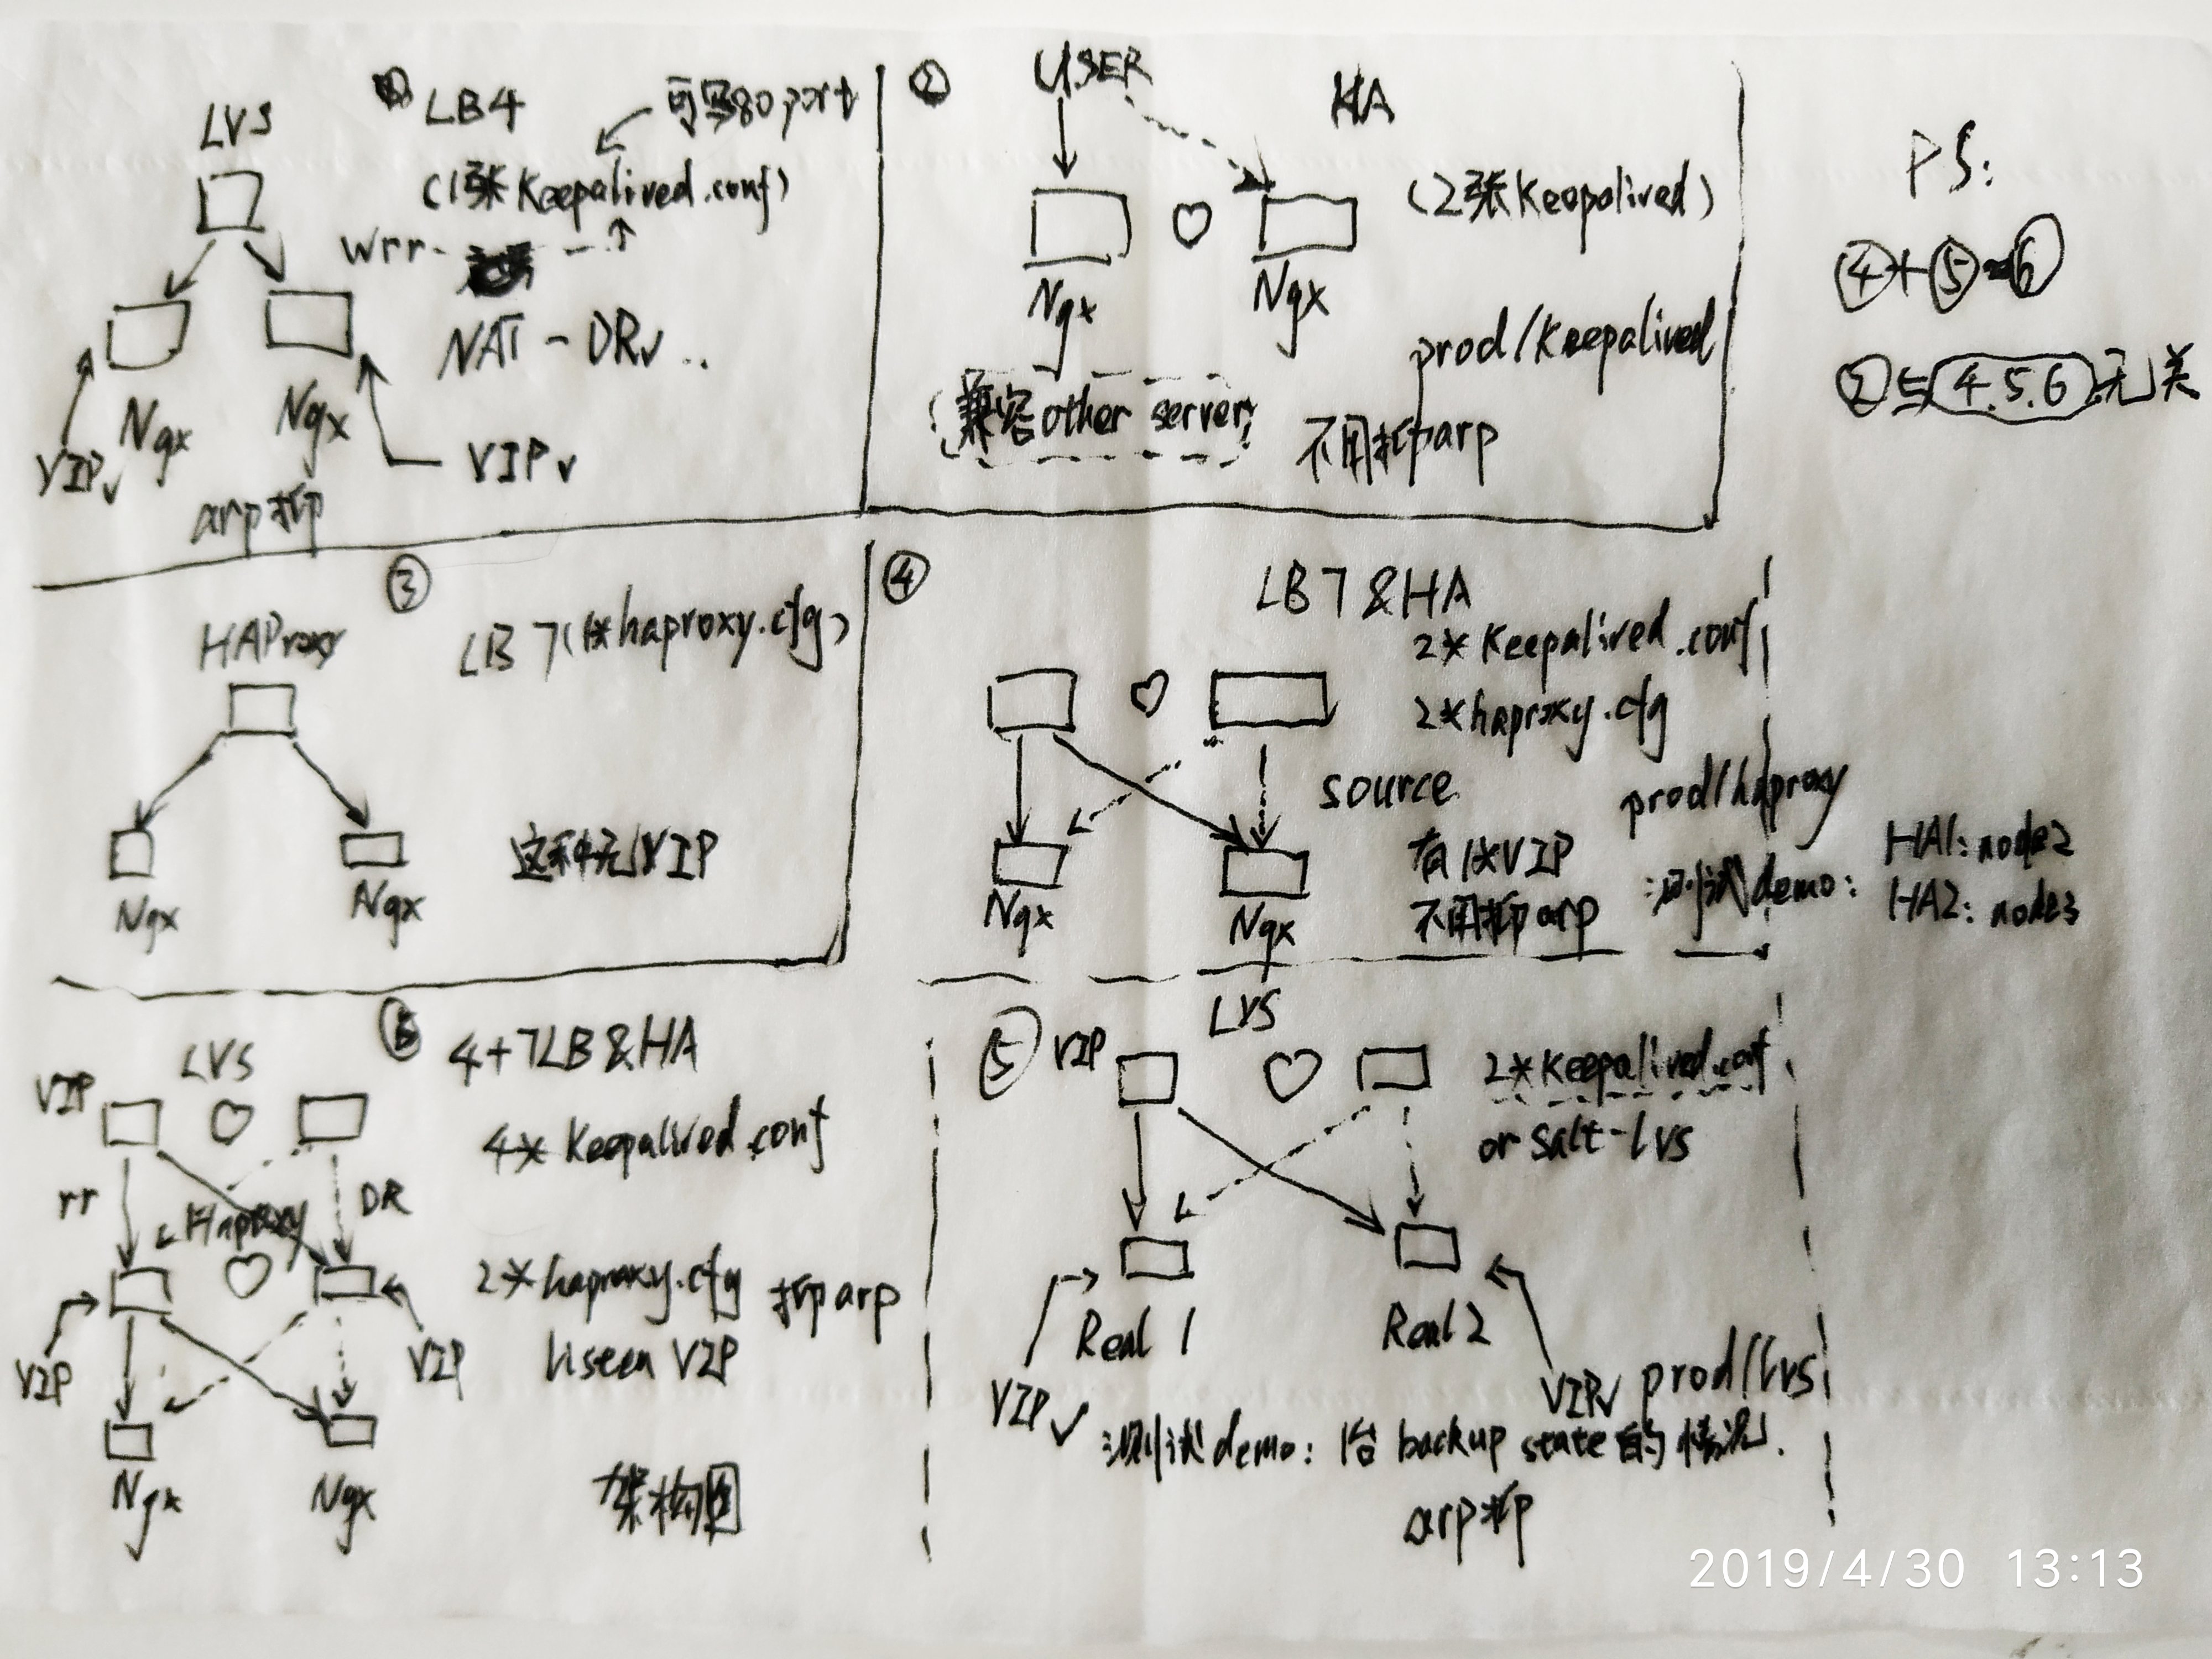 ① LB4
可写80 port
LVS
(1张Keepalived.conf)
wrr
NAT - DR✓ ..
Ngx
Ngx
VIP✓
VIP✓
arp抑
② USER
HA
(2张Keepalived)
Ngx
Ngx
prod/Keepalived
兼容other server
不用抑arp
PS:
④+⑤=⑥
②与4.5.6无关
③
HAProxy
LB7(1张haproxy.cfg)
这种无VIP
Ngx
Ngx
④
LB7&HA
2*Keepalived.conf
2*haproxy.cfg
source
prod/haproxy
有1张VIP
不用抑arp
测试demo:
HA1: node2
HA2: node3
Ngx
Ngx
⑥ 4+7LB&HA
LVS
VIP
4* Keepalived.conf
rr
DR
Haproxy
2*haproxy.cfg 抑arp
liseen VIP
VIP
VIP
Ngx
Ngx
架构图
⑤ VIP
LVS
2*Keepalived.conf
or Salt-lvs
Real 1
Real 2
VIP✓
VIP✓ prod/lvs
测试demo: 1台 backup state的情况.
arp抑
2019/4/30 13:13